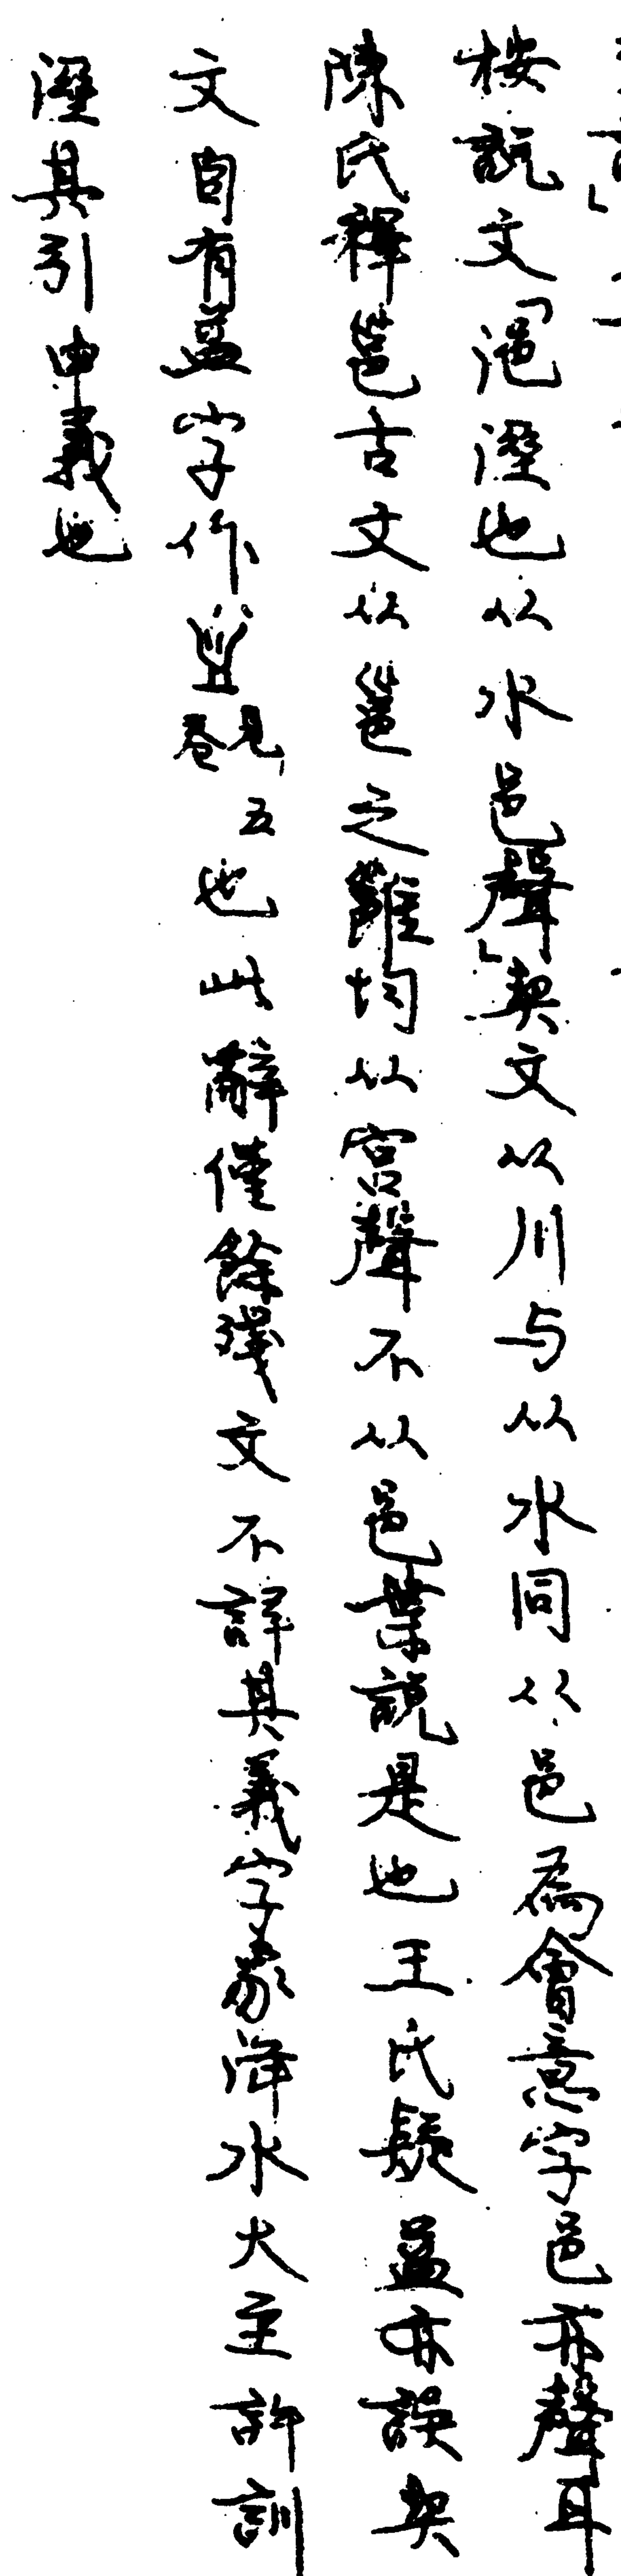 按說文「浥溼也从水邑聲」契文从川与从水同从邑為會意字邑亦聲耳
陳氏釋邕古文从邕之雝均从宮聲不从邑葉說是也王氏疑益亦誤契
文自有益字作見卷五也此辭僅餘殘文不詳其義字象洚水大至許訓
溼其引申義也